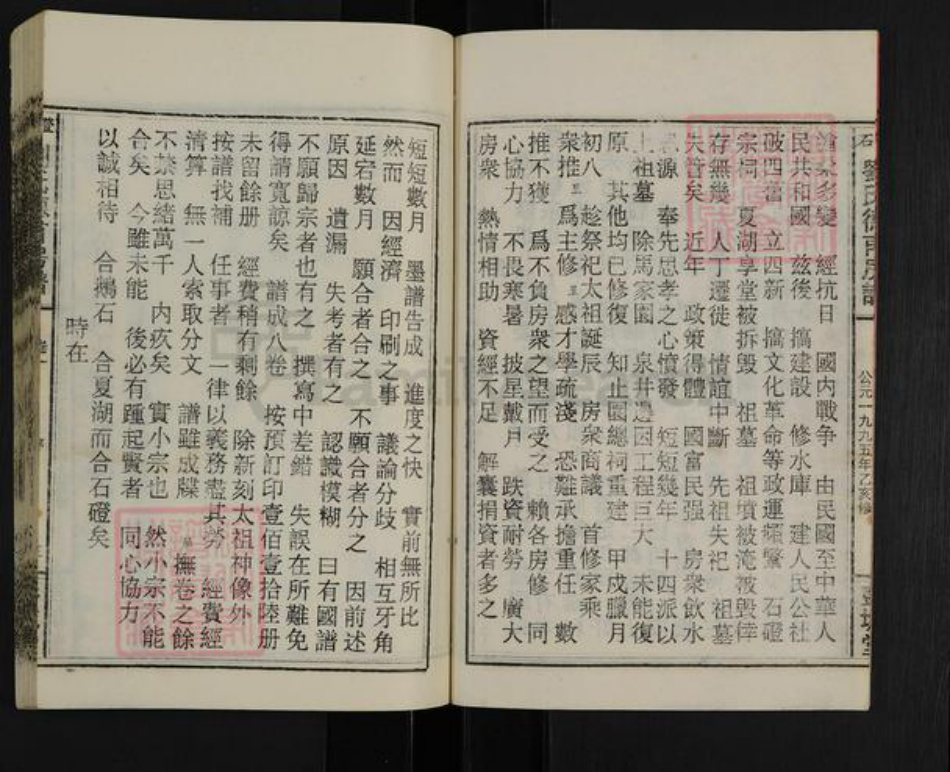 公元一九九五年乙亥修
滄桑多變 經抗日 國內戰争 由民國至中華人
民共和國 茲後 搞建設 修水庫 建人民公社
破四舊 立四新 搞文化革命等政運頻繁 石磴
宗祠 夏湖享堂被拆毀 祖墓 祖墳被淹被毀倖
存無幾 人丁遷徙 情誼中斷 先祖失祀 祖墓
失管矣 近年 政策得體 國富民强 房衆飲水
思源 奉先思孝之心憤發 短短幾年 十四派以
上祖墓 除馬家園 泉井邊因工程巨大 未能復
原 其他均已修復 知止園總祠重建 甲戌臘月
初八 趁祭祀太祖誕辰 房衆商議 首修家乘
衆推 爲主修 感才學疏淺 恐難承擔重任 數
推不獲 爲不負房衆之望而受之 賴各房修 同
心協力 不畏寒暑 披星戴月 跌資耐勞 廣大
房衆 熱情相助 資經不足 解囊捐資者多之
短短數月 墨譜告成 進度之快 實前無所比
然而 因經濟 印刷之事 議論分歧 相互牙角
延宕數月 願合者合之 不願合者分之 因前述
原因 遺漏 失考者有之 認識模糊 曰有國譜
不願歸宗者也有之 撰寫中差錯 失誤在所難免
得請寬諒矣 譜成八卷 按預訂印壹佰壹拾陸册
未留餘册 經費稍有剩餘 除新刻太祖神像外
按譜找補 任事者一律以義務盡其勞 經費經
清算 無一人索取分文 譜雖成牒 撫卷之餘
不禁思緒萬千 内疚矣 實小宗也 然小宗不能
合矣 今雖未能 後必有踵起賢者 同心協力
以誠相待 合鵝石 合夏湖而合石磴矣
時在